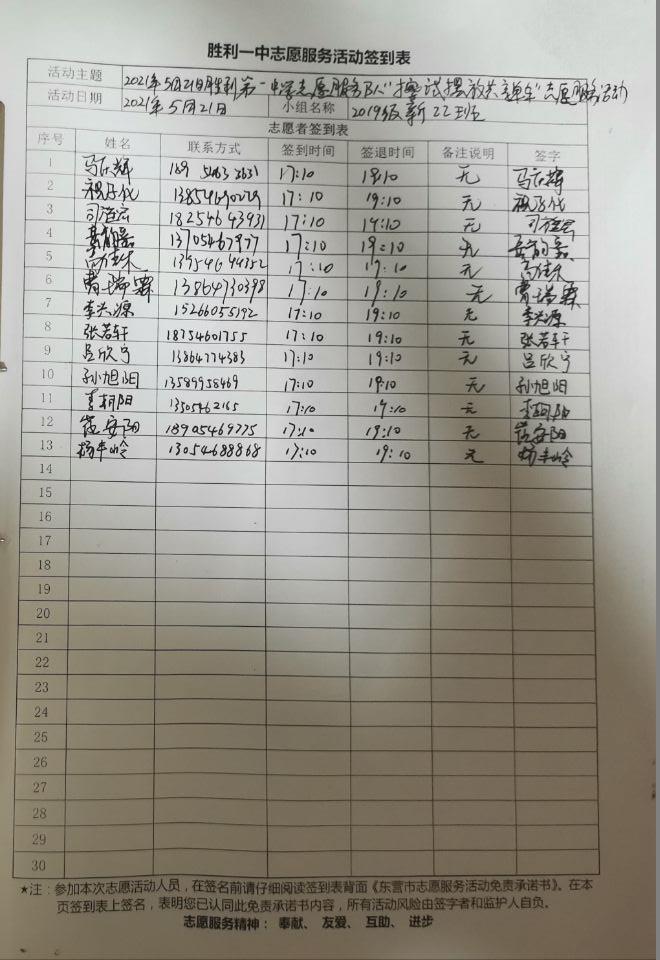 胜利一中志愿服务活动签到表
活动主题 2021年5月21日胜利第一中学志愿服务队"擦拭摆放共享单车"志愿服务活动
活动日期 2021年5月21日 小组名称 2019级新22班
志愿者签到表
序号 姓名 联系方式 签到时间 签退时间 备注说明 签字
1 17:10 19:10 无
2 17:10 19:10 无
3 18254643931 17:10 19:10 无
4 17:10 19:10 无
5 17:10 19:10 无
6 曹瑞霖 13864730398 17:10 19:10 无 曹瑞霖
7 李兴源 15266055192 17:10 19:10 无 李兴源
8 张若轩 18754601755 17:10 19:10 无 张若轩
9 吕欣宁 13864774383 17:10 19:10 无 吕欣宁
10 孙旭阳 13589958469 17:10 19:10 无 孙旭阳
11 李柯阳 13505462165 17:10 19:10 无 李柯阳
12 18905469775 17:10 19:10 无
13 杨丰岭 13054688868 17:10 19:10 无 杨丰岭
14
15
16
17
18
19
20
21
22
23
24
25
26
27
28
29
30
★注：参加本次志愿活动人员，在签名前请仔细阅读签到表背面《东营市志愿服务活动免责承诺书》。在本
页签到表上签名，表明您已认同此免责承诺书内容，所有活动风险由签字者和监护人自负。
志愿服务精神：奉献、友爱、互助、进步